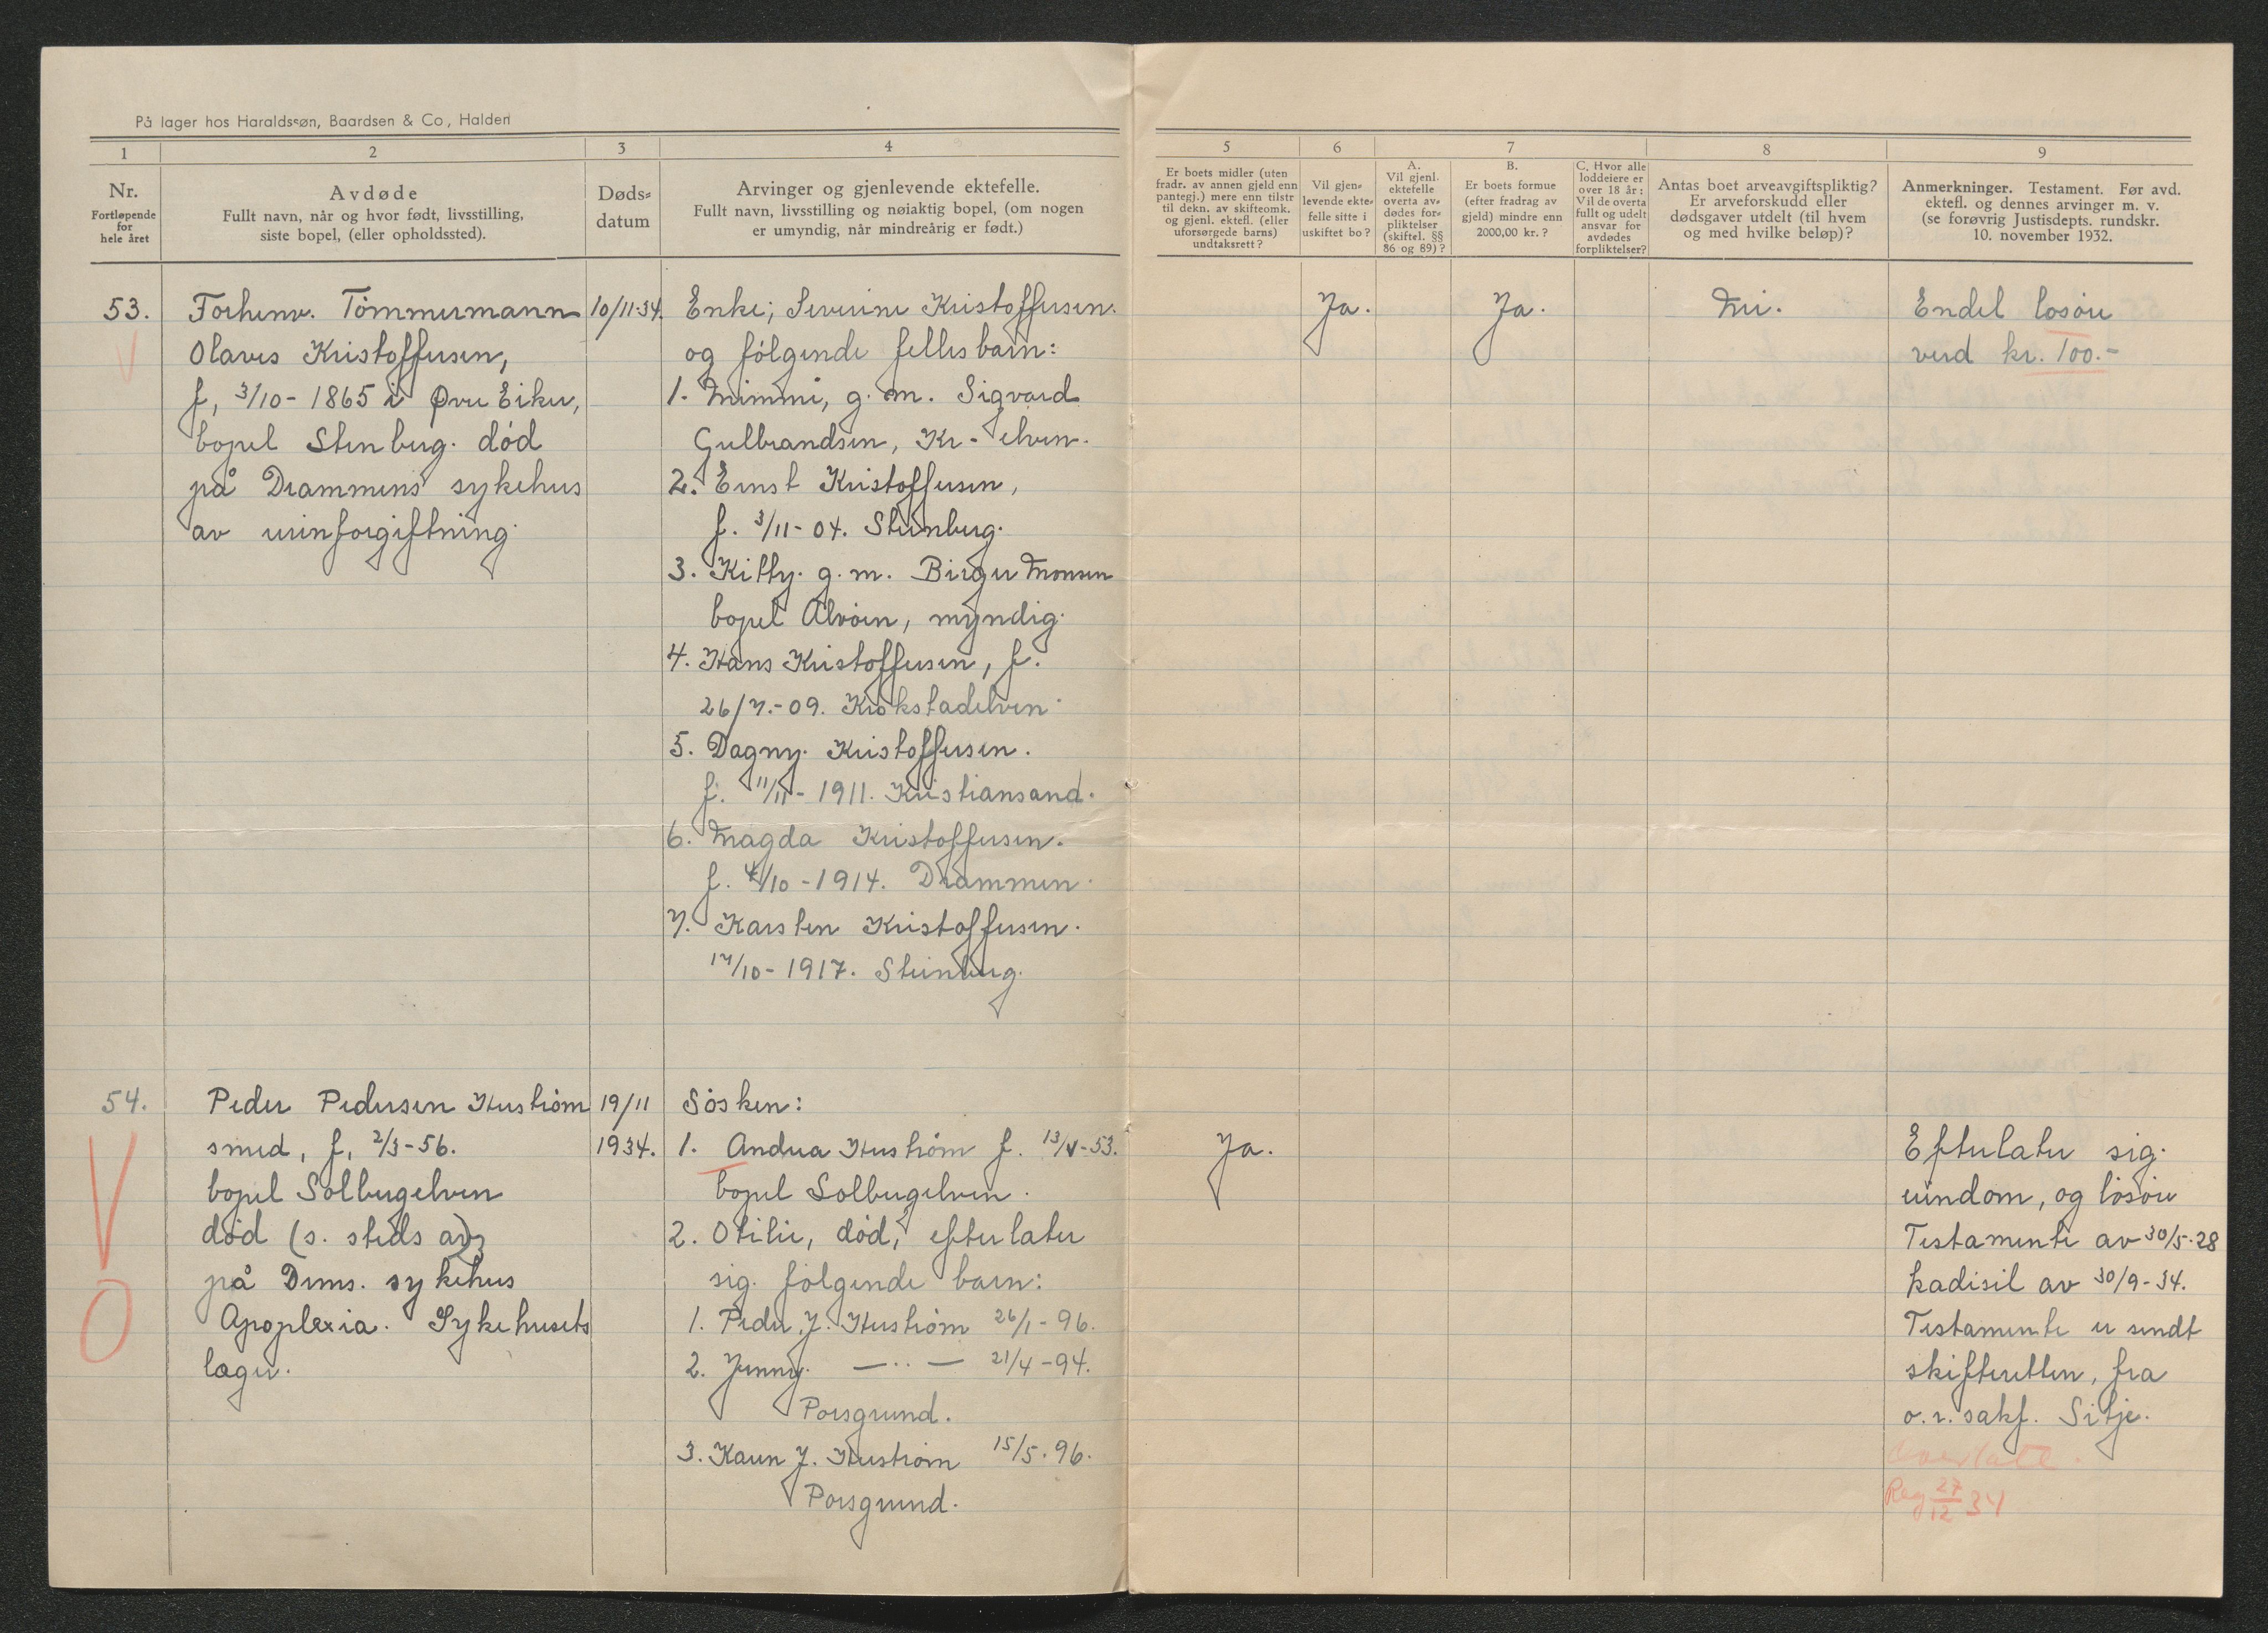 På lager hos Haraldssøn, Baardsen & Co, Halden
1
2
3
4
5
6
7
8
9
Nr.
Fortløpende
for
hele året
Avdøde
Fullt navn, når og hvor født, livsstilling,
siste bopel, (eller opholdssted).
Døds-
datum
Arvinger og gjenlevende ektefelle.
Fullt navn, livsstilling og nøiaktig bopel, (om nogen
er umyndig, når mindreårig er født.)
Er boets midler (uten
fradr. av annen gjeld enn
pantegj.) mere enn tilstr
til dekn. av skifteomk.
og gjenl. ektefl. (eller
uforsørgede barns)
undtaksrett?
Vil gjen-
levende ekte-
felle sitte i
uskiftet bo?
A.
Vil gjenl.
ektefelle
overta av-
dødes for-
pliktelser
(skiftel. §§
86 og 89)?
B.
Er boets formue
(efter fradrag av
gjeld) mindre enn
2000,00 kr.?
C. Hvor alle
loddeiere er
over 18 år:
Vil de overta
fullt og udelt
ansvar for
avdødes
forpliktelser?
Antas boet arveavgiftspliktig?
Er arveforskudd eller
dødsgaver utdelt (til hvem
og med hvilke beløp)?
Anmerkninger. Testament. Før avd.
ektefl. og dennes arvinger m. v.
(se forøvrig Justisdepts. rundskr.
10. november 1932.
53.
Forhenv. Tömmermann
Olaves Kristoffersen,
f, 3/10-1865 i Øvre Eiker,
bopel Stenberg. död
på Drammens sykehus
av urinforgiftning.
10/11-34.
Enke; Severine Kristoffersen.
og fölgende felles barn:
1. Mimmi, g. m. Sigvard
Gulbrandsen, Kr-elven.
2. Ernst Kristoffersen,
f. 3/11-04. Steinberg.
3. Kitty. g. m. Birger Monsen
bopel Alvöen, myndig.
4. Hans Kristoffersen, f.
26/7.-09. Krokstadelven.
5. Dagny. Kristoffersen.
f. 11/11-1911. Kristiansand.
6. Magda Kristoffersen.
f. 4/10-1914. Drammen.
7. Karsten Kristoffersen.
17/10-1917. Steinberg.
Ja.
Ja.
Nei.
Endel losöre
verd kr. 100.-
54.
Peder Pedersen Herström
smed, f, 2/3-56.
bopel Solbergelven
död (s. steds av)
på Drms. sykehus
Apoplexia. Sykehusets
læger.
19/11
1934.
Sösken:
1. Andrea Herström f. 13/4-53.
bopel Solbergelven.
2. Otilie, död, efterlater
sig. fölgende barn:
1. Peder J. Herström 26/1-96.
2. Jenny. —..— 21/4-94.
Porsgrund.
3. Karen J. Herström 15/5.96.
Porsgrund.
Ja.
Efterlater sig.
eiendom, og lösöre
Testamente av 30/5.28
kadisil av 30/9-34.
Testamente er sendt
skifteretten, fra
o. r. sakf. Siltje.
Overlatt.
Reg 27/12 34